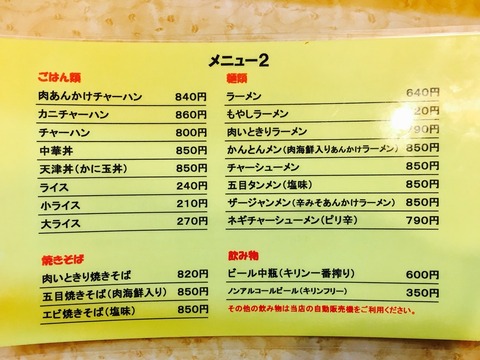 メニュー2
ごはん類
肉あんかけチャーハン 840円
カニチャーハン 860円
チャーハン 800円
中華丼 850円
天津丼(かに玉丼) 850円
ライス 240円
小ライス 210円
大ライス 270円
焼きそば
肉いときり焼きそば 820円
五目焼きそば(肉海鮮入り) 850円
エビ焼きそば(塩味) 850円
麺類
ラーメン 640円
もやしラーメン 20円
肉いときりラーメン 790円
かんとんメン(肉海鮮入りあんかけラーメン) 850円
チャーシューメン 850円
五目タンメン(塩味) 850円
ザージャンメン(辛みそあんかけラーメン) 850円
ネギチャーシューメン(ピリ辛) 790円
飲み物
ビール中瓶(キリン一番搾り) 600円
ノンアルコールビール(キリンフリー) 350円
その他の飲み物は当店の自動販売機をご利用ください。